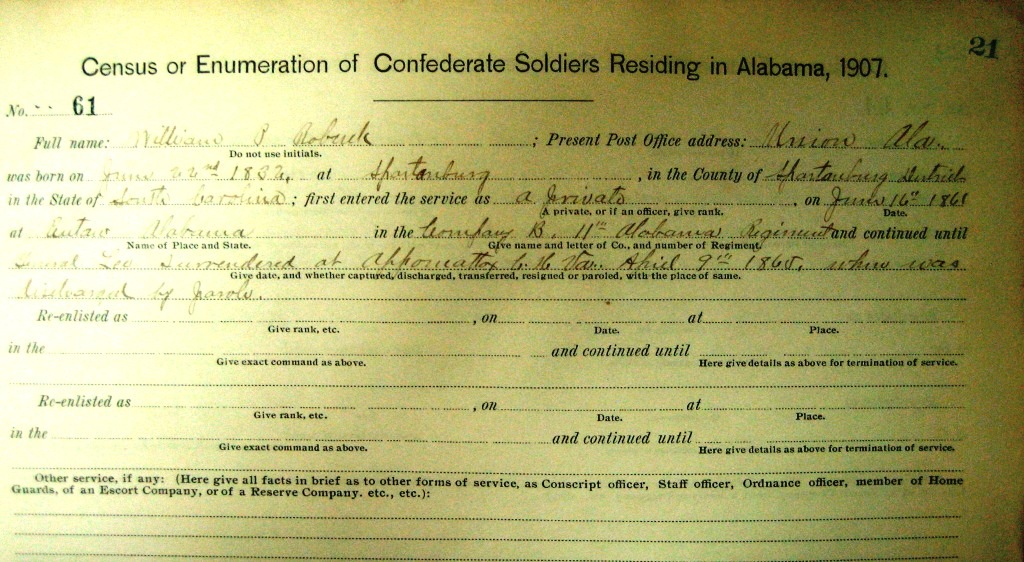 21
Census or Enumeration of Confederate Soldiers Residing in Alabama, 1907.
No. 61
Full name: William P Robuck ; Present Post Office address: Union Ala.
Do not use initials.
was born on June 22nd 1832, at Spartanburg , in the County of Spartanburg District
in the State of South Carolina ; first entered the service as a Private , on June 16th 1861
A private, or if an officer, give rank. Date.
at Eutaw Alabama in the Company B. 11th Alabama Regiment and continued until
Name of Place and State. Give name and letter of Co., and number of Regiment.
General Lee Surrendered at Appomattox C. H. Va. April 9th 1865, when was
Give date, and whether captured, discharged, transferred, resigned or paroled, with the place of same.
discharged by parole.
Re-enlisted as , on at
Give rank, etc. Date. Place.
in the and continued until
Give exact command as above. Here give details as above for termination of service.
Re-enlisted as , on at
Give rank, etc. Date. Place.
in the and continued until
Give exact command as above. Here give details as above for termination of service.
Other service, if any: (Here give all facts in brief as to other forms of service, as Conscript officer, Staff officer, Ordnance officer, member of Home
Guards, of an Escort Company, or of a Reserve Company. etc., etc.):